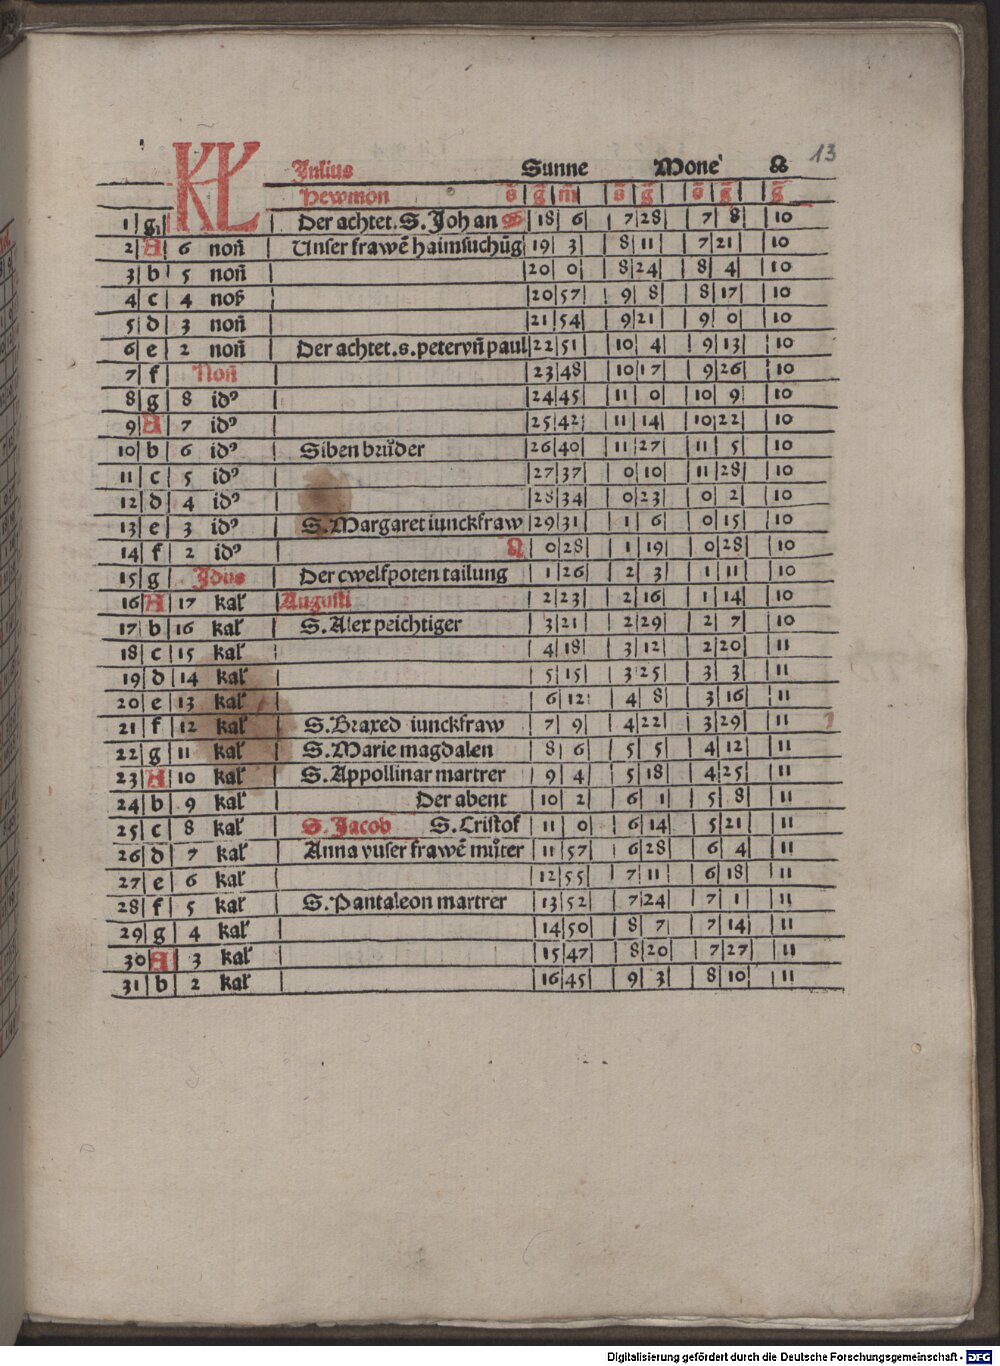 13
KL Julius Sunne Mone ☊
Hewmon s̄ ḡ m̄ s̄ ḡ s̄ ḡ ḡ
1 g Der achtet. S. Johan ♋ 18 6 7 28 7 8 10
2 A 6 non̄ Unser frawē haimsuchūg 19 3 8 11 7 21 10
3 b 5 non̄ 20 0 8 24 8 4 10
4 c 4 non̄ 20 57 9 8 8 17 10
5 d 3 non̄ 21 54 9 21 9 0 10
6 e 2 non̄ Der achtet. s. peter vn̄ paul 22 51 10 4 9 13 10
7 f Non̄ 23 48 10 17 9 26 10
8 g 8 idꝰ 24 45 11 0 10 9 10
9 A 7 idꝰ 25 42 11 14 10 22 10
10 b 6 idꝰ Siben brůder 26 40 11 27 11 5 10
11 c 5 idꝰ 27 37 0 10 11 28 10
12 d 4 idꝰ 28 34 0 23 0 2 10
13 e 3 idꝰ S. Margaret iunckfraw 29 31 1 6 0 15 10
14 f 2 idꝰ ♌ 0 28 1 19 0 28 10
15 g Jdus Der cwelfpoten tailung 1 26 2 3 1 11 10
16 A 17 kal' Augusti 2 23 2 16 1 14 10
17 b 16 kal' S. Alex peichtiger 3 21 2 29 2 7 10
18 c 15 kal' 4 18 3 12 2 20 11
19 d 14 kal' 5 15 3 25 3 3 11
20 e 13 kal' 6 12 4 8 3 16 11
21 f 12 kal' S. Braxed iunckfraw 7 9 4 22 3 29 11
22 g 11 kal' S. Marie magdalen 8 6 5 5 4 12 11
23 A 10 kal' S. Appollinar martrer 9 4 5 18 4 25 11
24 b 9 kal' Der abent 10 2 6 1 5 8 11
25 c 8 kal' S. Jacob S. Cristof 11 0 6 14 5 21 11
26 d 7 kal' Anna vnser frawē můter 11 57 6 28 6 4 11
27 e 6 kal' 12 55 7 11 6 18 11
28 f 5 kal' S. Pantaleon martrer 13 52 7 24 7 1 11
29 g 4 kal' 14 50 8 7 7 14 11
30 A 3 kal' 15 47 8 20 7 27 11
31 b 2 kal' 16 45 9 3 8 10 11
Digitalisierung gefördert durch die Deutsche Forschungsgemeinschaft - DFG